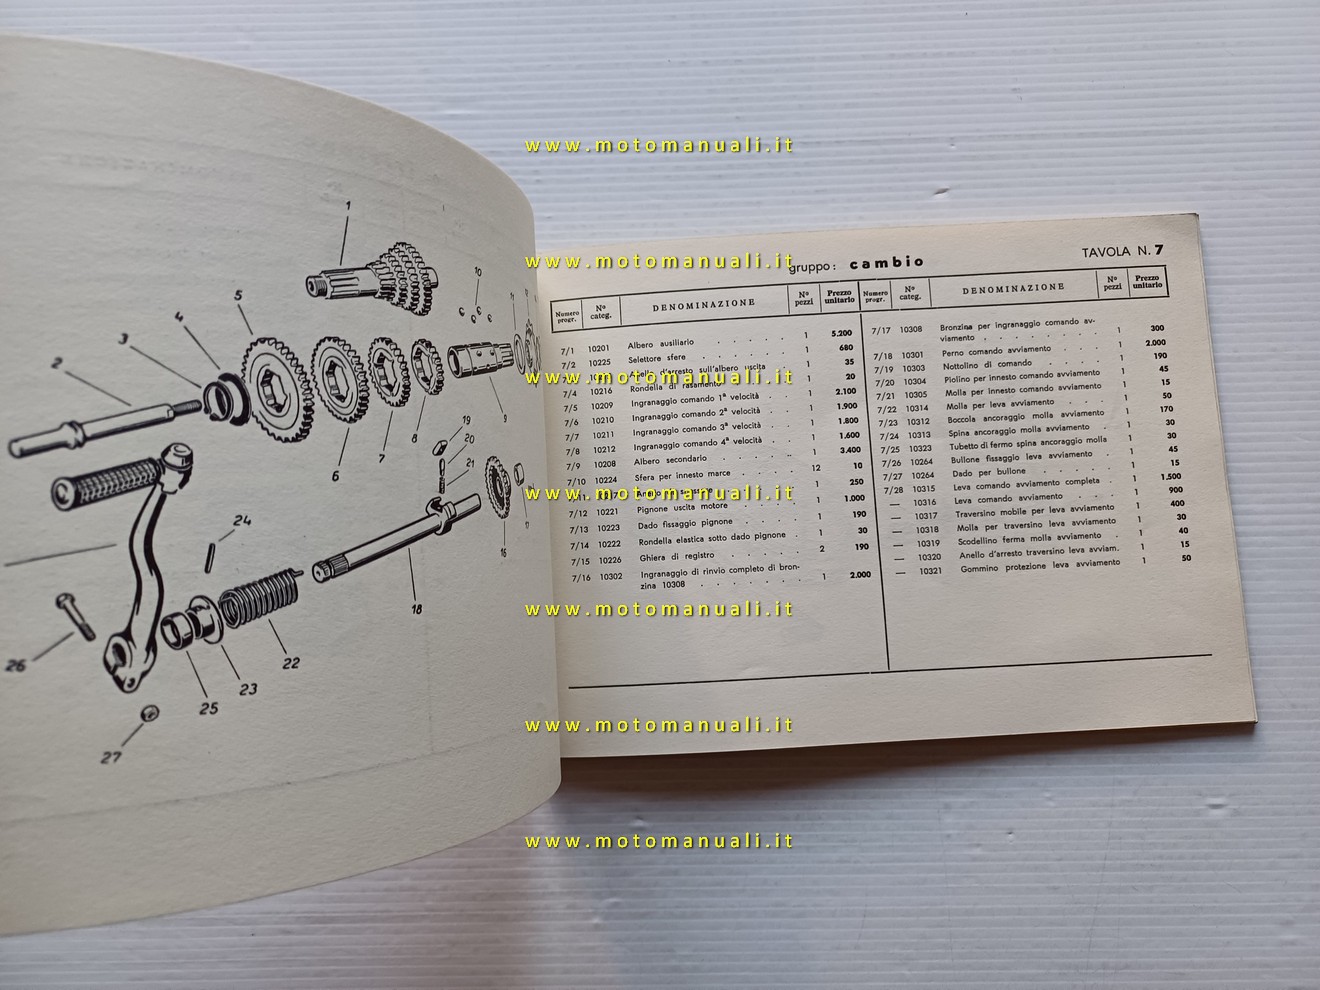 www.motomanuali.it
gruppo: cambio
TAVOLA N. 7
Numero progr. N° categ. DENOMINAZIONE N° pezzi Prezzo unitario
7/1 10201 Albero ausiliario 1 5.200
7/2 10225 Selettore sfere 1 680
Anello d'arresto sull'albero uscita 1 35
7/4 10216 Rondella di rasamento 1 20
7/5 10209 Ingranaggio comando 1ª velocità 1 2.100
7/6 10210 Ingranaggio comando 2ª velocità 1 1.900
7/7 10211 Ingranaggio comando 3ª velocità 1 1.800
7/8 10212 Ingranaggio comando 4ª velocità 1 1.600
7/9 10208 Albero secondario 1 3.400
7/10 10224 Sfera per innesto marce 12 10
1 250
7/12 10221 Pignone uscita motore 1 1.000
7/13 10223 Dado fissaggio pignone 1 190
7/14 10222 Rondella elastica sotto dado pignone 1 30
7/15 10226 Ghiera di registro 2 190
7/16 10302 Ingranaggio di rinvio completo di bron-
zina 10308 1 2.000
Numero progr. N° categ. DENOMINAZIONE N° pezzi Prezzo unitario
7/17 10308 Bronzina per ingranaggio comando av-
viamento 1 300
7/18 10301 Perno comando avviamento 1 2.000
7/19 10303 Nottolino di comando 1 190
7/20 10304 Piolino per innesto comando avviamento 1 45
7/21 10305 Molla per innesto comando avviamento 1 15
7/22 10314 Molla per leva avviamento 1 50
7/23 10312 Boccola ancoraggio molla avviamento 1 170
7/24 10313 Spina ancoraggio molla avviamento 1 30
7/25 10323 Tubetto di fermo spina ancoraggio molla 1 30
7/26 10264 Bullone fissaggio leva avviamento 1 45
7/27 10264 Dado per bullone 1 15
7/28 10315 Leva comando avviamento completa 1 1.500
— 10316 Leva comando avviamento 1 900
— 10317 Traversino mobile per leva avviamento 1 400
— 10318 Molla per traversino leva avviamento 1 30
— 10319 Scodellino ferma molla avviamento 1 40
— 10320 Anello d'arresto traversino leva avviam. 1 15
— 10321 Gommino protezione leva avviamento 1 50
www.motomanuali.it
www.motomanuali.it
www.motomanuali.it
www.motomanuali.it
www.motomanuali.it
www.motomanuali.it
1
10
5
4
3
2
9
8
7
6
19
20
21
24
16
18
22
23
25
26
27